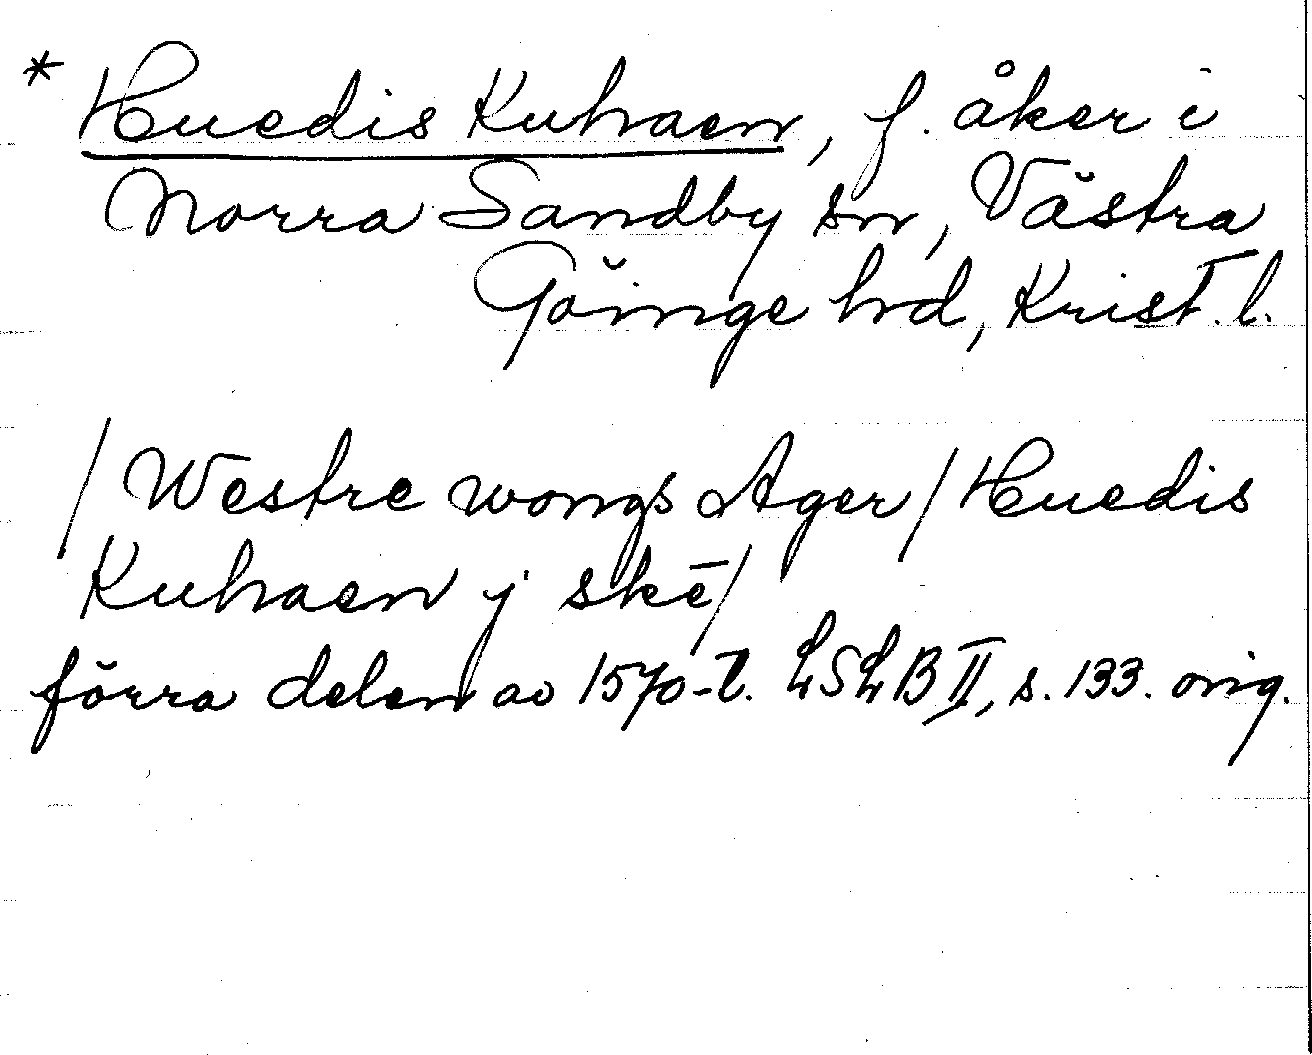 * Huedis Kuhraen, f. åker i
Norra Sandby sn, Västra
Göinge hrd, Krist. l.
/Westre wongs Ager/Huedis
Kuhraen j skē/
förra delen av 1570-t. LSLB II, s. 133. orig.